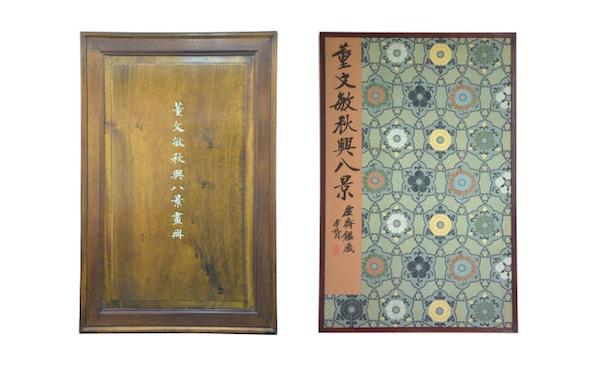 董文敏秋興八景畫冊
董文敏秋興八景
虛齋鑑藏
孝胥